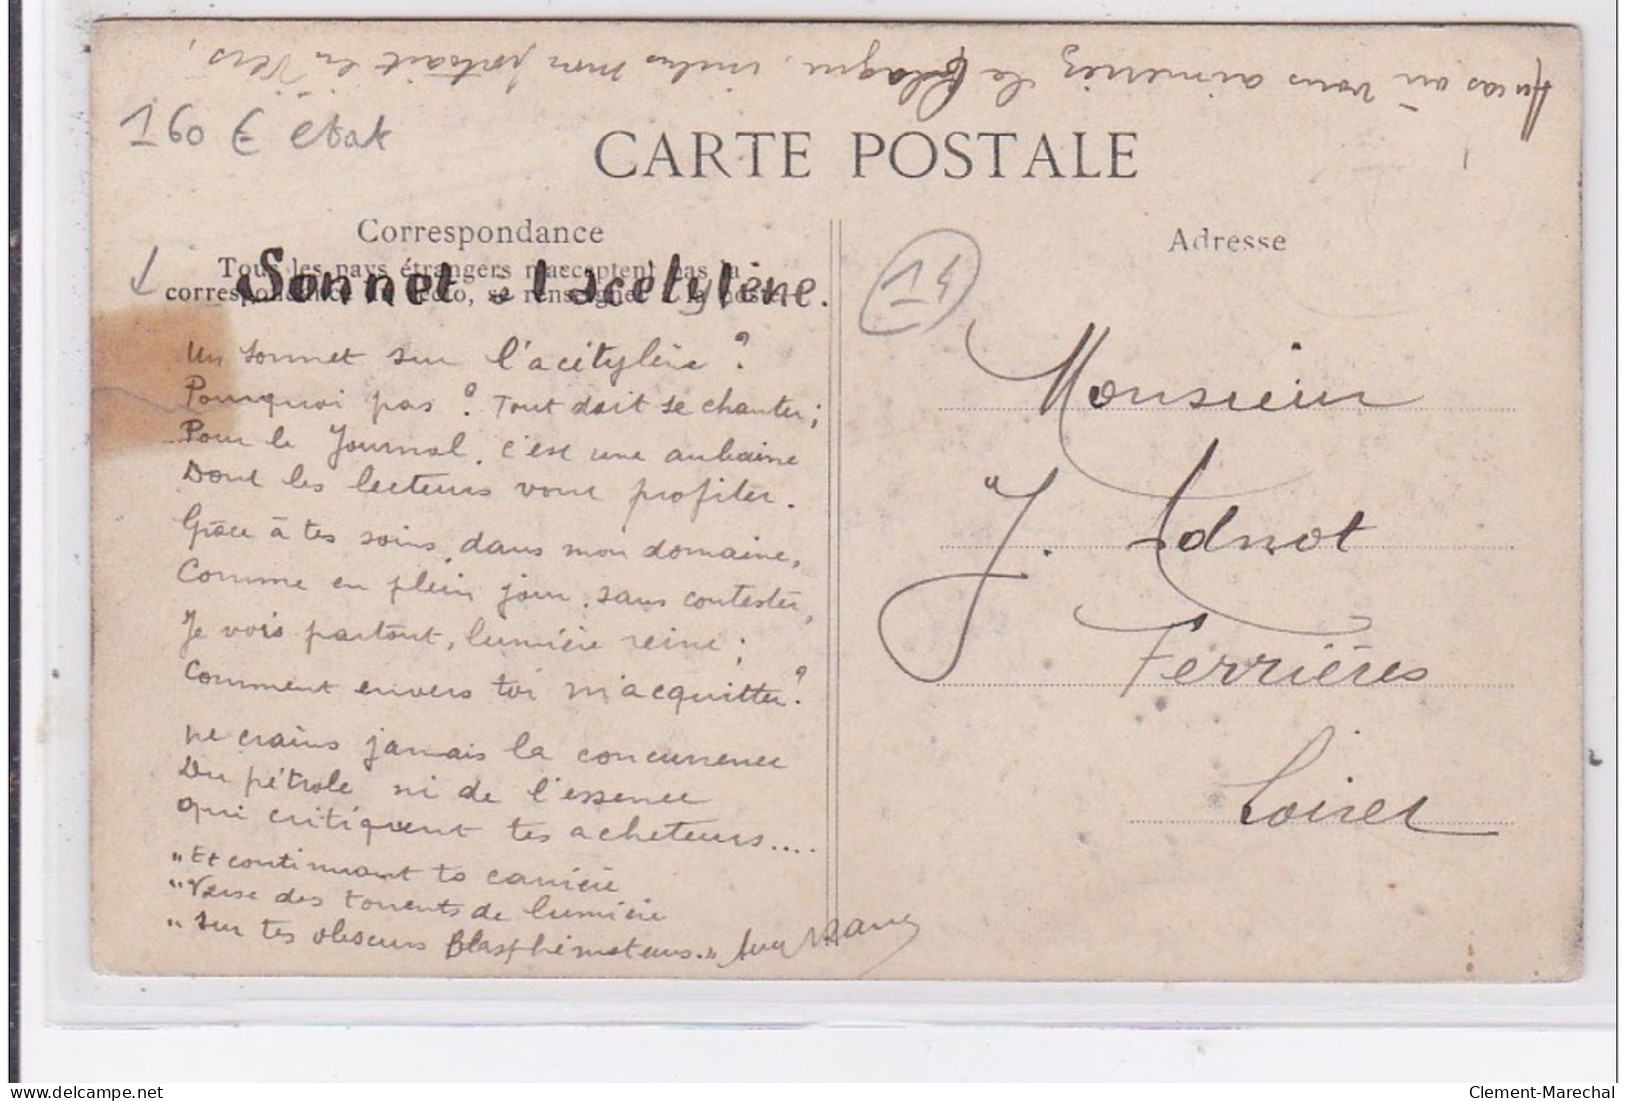 Au cas où vous aimeriez la blague, inclus mon portrait en vers,
160 € état
CARTE POSTALE
Correspondance
Tous les pays étrangers n'acceptent pas la
correspondance au recto, se renseigner à la poste.
Sonnet à l'Acetylène.
14
Adresse
Un sonnet sur l'acétylène ?
Pourquoi pas ? Tout doit se chanter ;
Pour le Journal, c'est une aubaine
Dont les lecteurs vont profiter.
Grâce à tes soins, dans mon domaine,
Comme en plein jour, sans contester,
Je vois partout, lumière reine ;
Comment envers toi m'acquitter ?
Ne crains jamais la concurrence
Du pétrole ni de l'essence
Qui critiquent tes acheteurs....
"Et continuant ta carrière
"Verse des torrents de lumière
"Sur tes obscurs Blasphémateurs."
Monsieur
J. Adnot
Ferrières
Loiret
Clement-Marechal